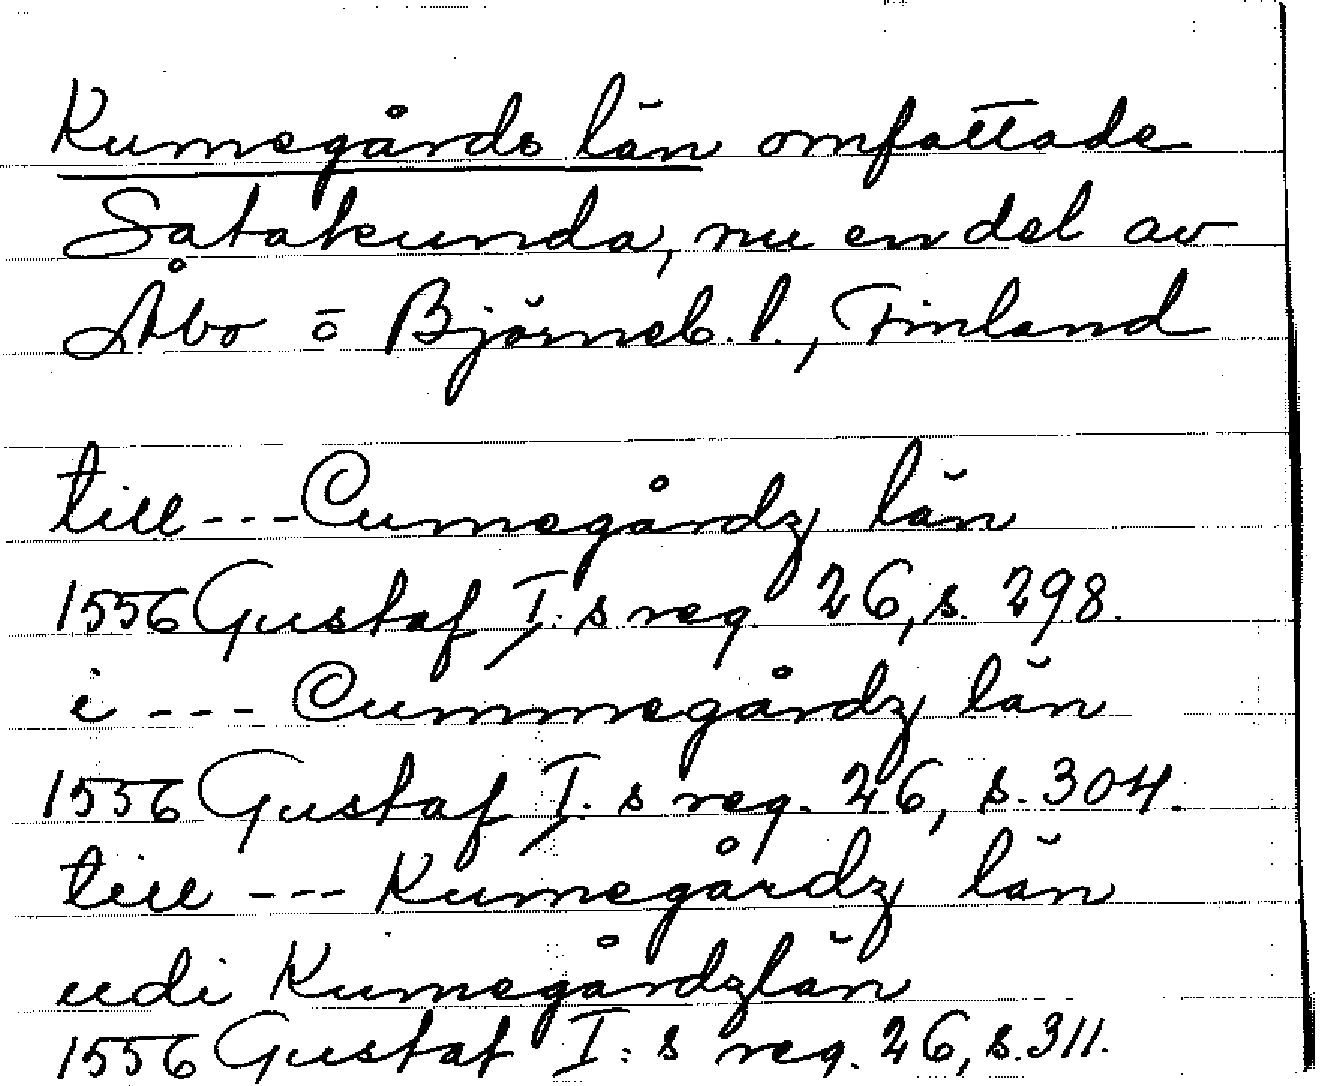 Kumogårds län omfattade
Satakunda, nu en del av
Åbo o Björneb. l., Finland
till --- Cumogårdz län
1556 Gustaf I:s reg. 26, s. 298.
i --- Cummogårdz län
1556 Gustaf I:s reg. 26, s. 304.
till --- Kumogårdz län
udi Kumogårdzlän
1556 Gustaf I:s reg. 26, s. 311.